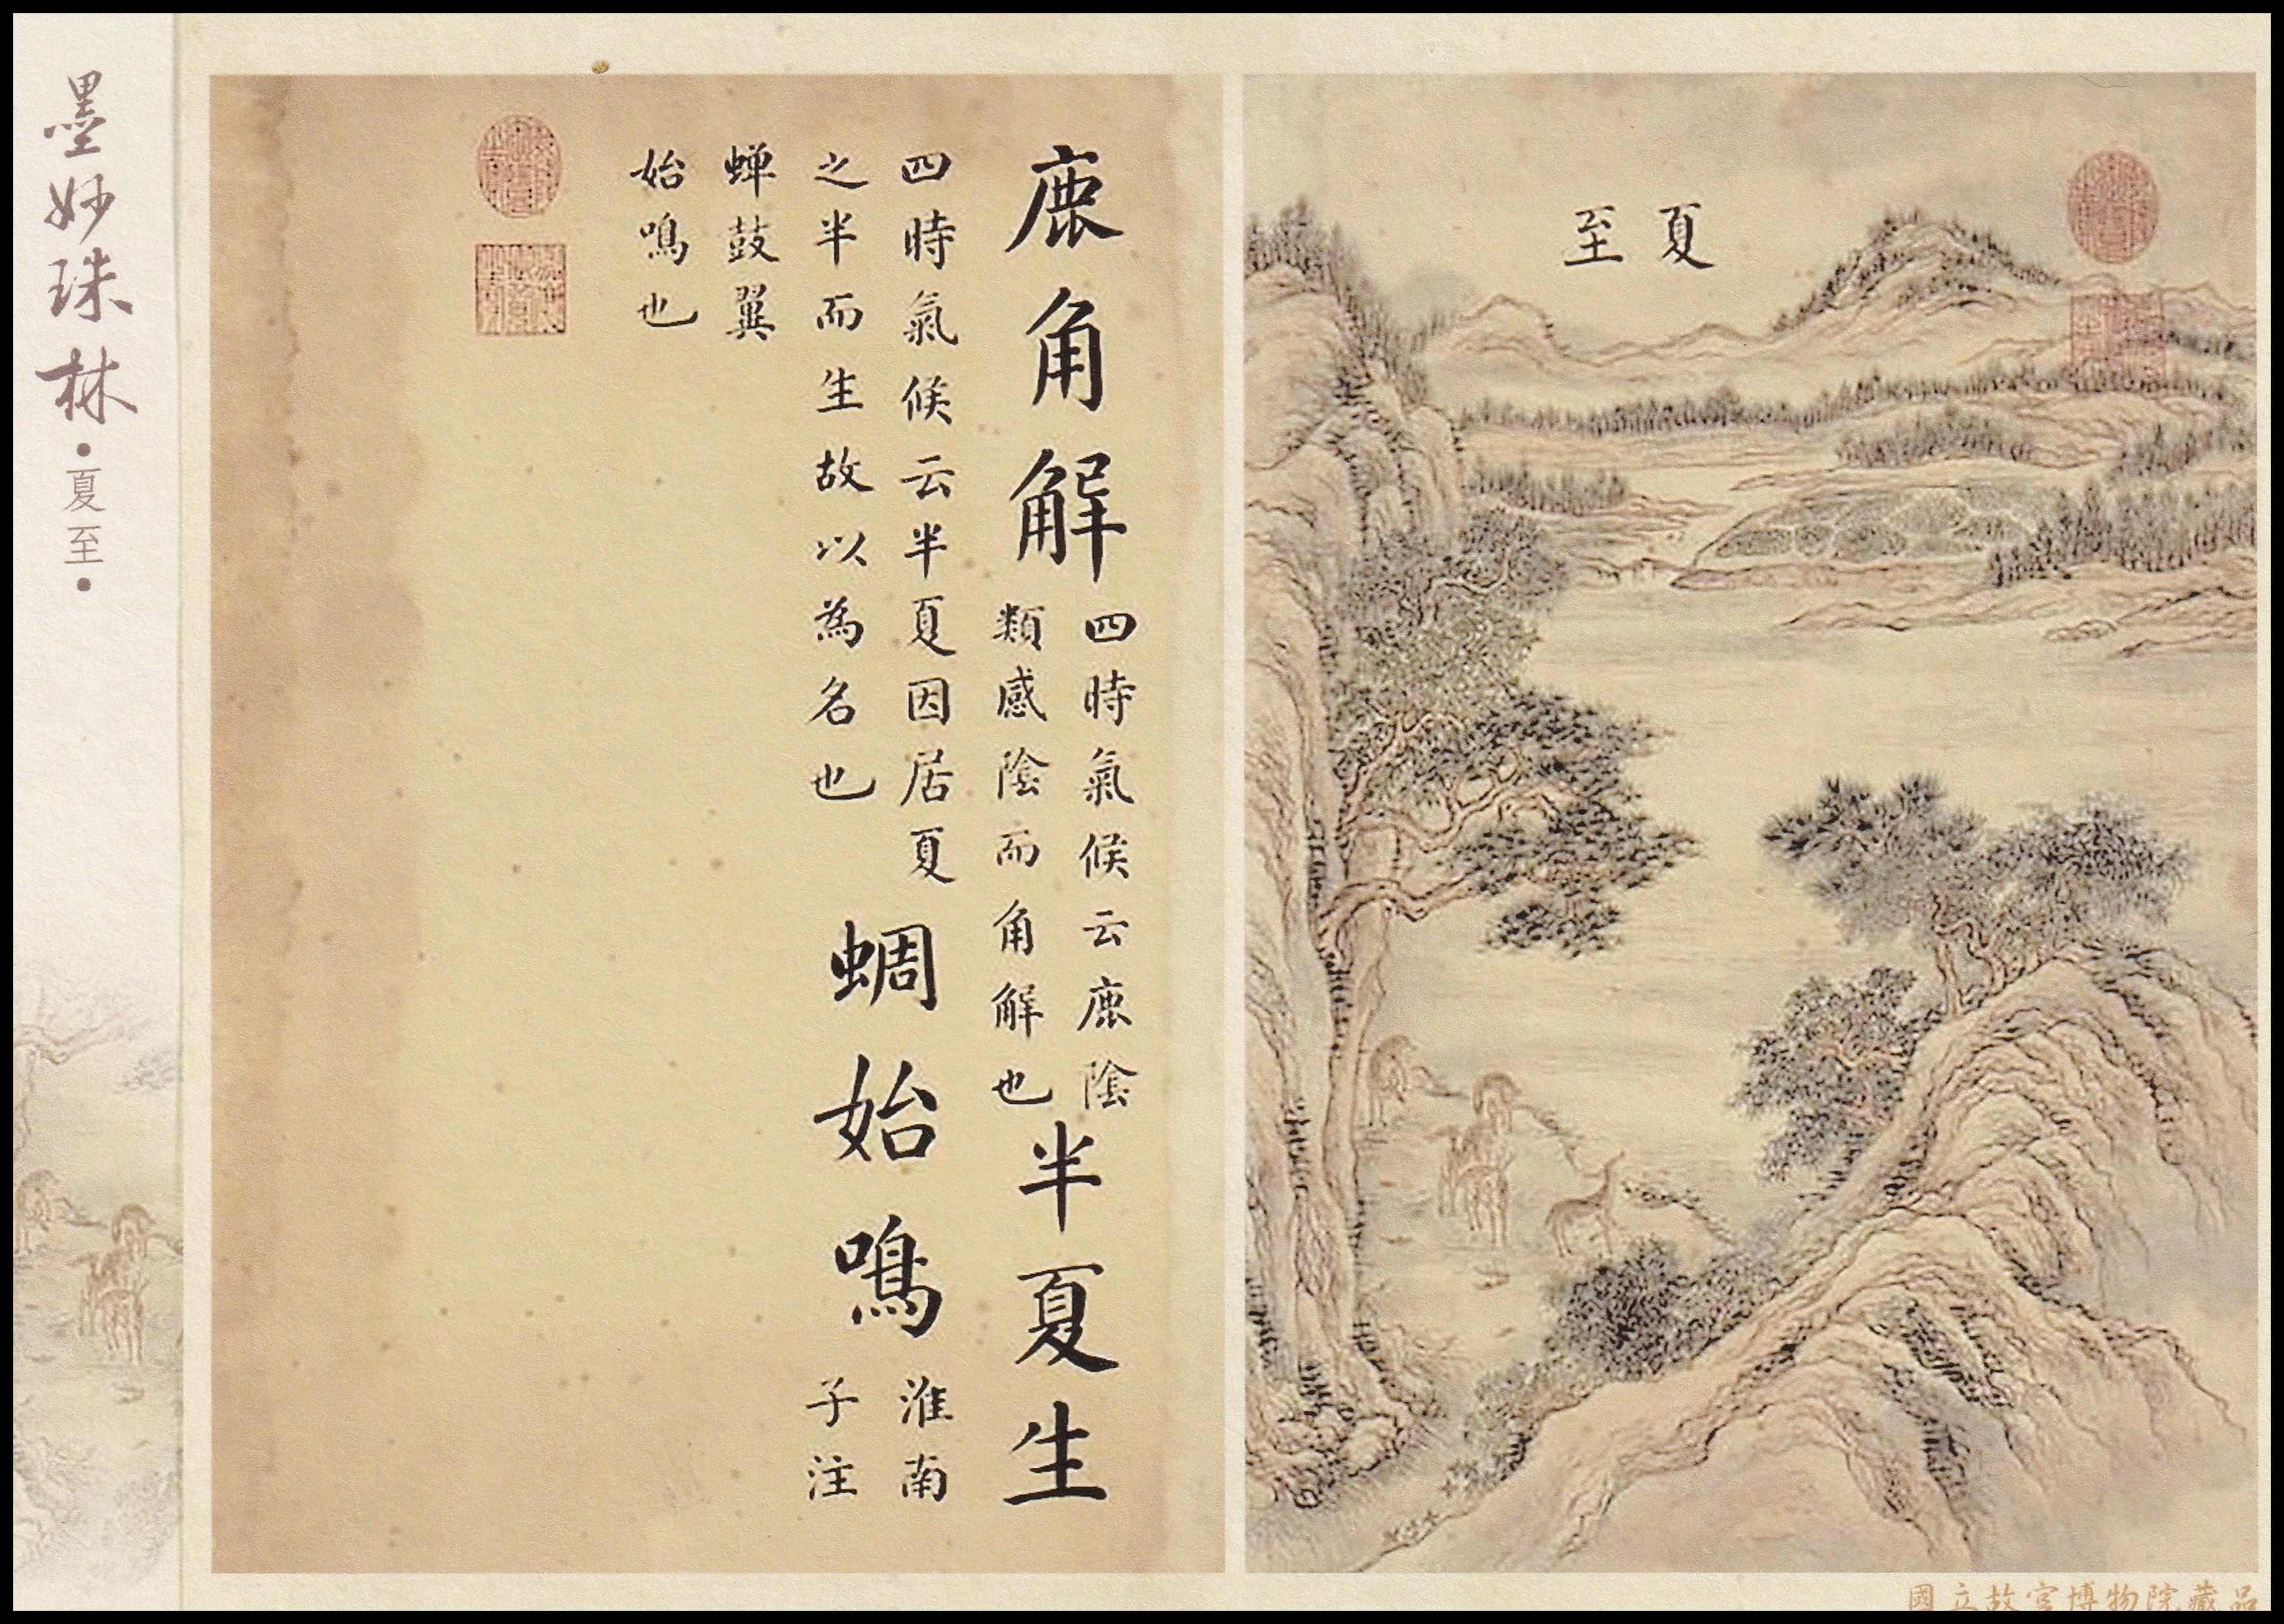 墨妙珠林
•夏至•
夏至
鹿角解
四時氣候云鹿陰
類感陰而角解也
半夏生
四時氣候云半夏因居夏
之半而生故以為名也
蜩始鳴
淮南
子注
蝉鼓翼
始鳴也
國立故宮博物院藏品